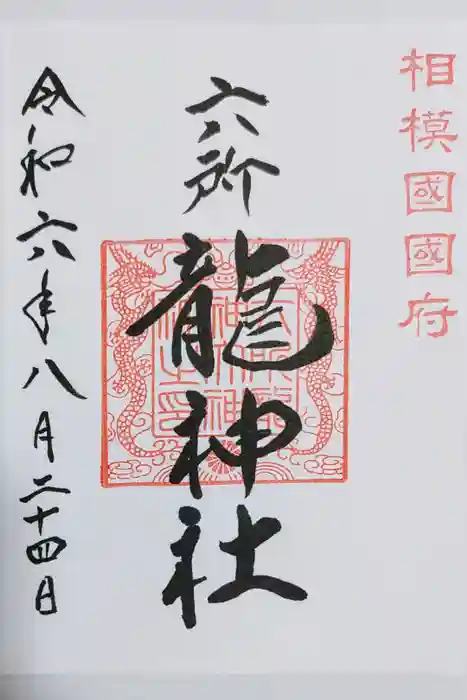 相模國國府
六所
龍神社
令和六年八月二十四日